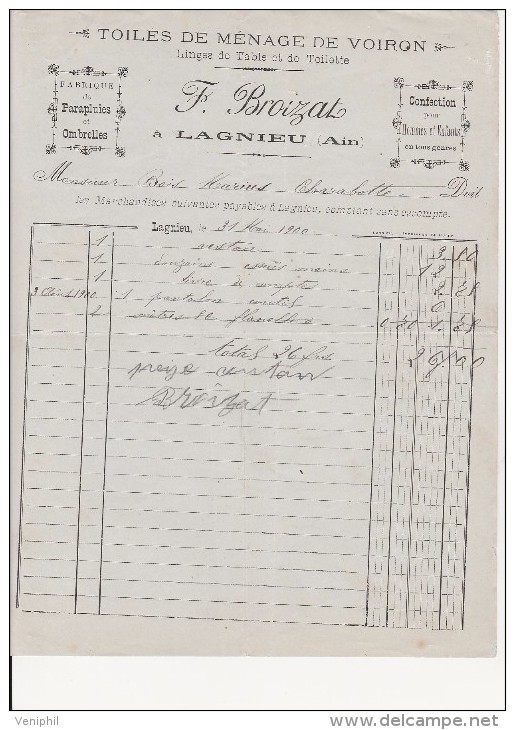 TOILES DE MÉNAGE DE VOIRON
Linges de Table et de Toilette
FABRIQUE
de
Parapluies
et
Ombrelles
F. Broizat
À LAGNIEU (Ain)
Confection
pour
Hommes et Enfants
en tous genres
Monsieur Bois Marius Charabotte Doit
les Marchandises suivantes payables à Lagnieu, comptant sans escompte.
Lagnieu, le 31 Mai 1900
1 3 80
1 12
1 livre à 2 25
3 Août 1900 1 pantalon coutil 6
2 mètres de flanelle 0 20 1
total 26 frs 26 00
Broizat
Veniphil
http://www.delcampe.net